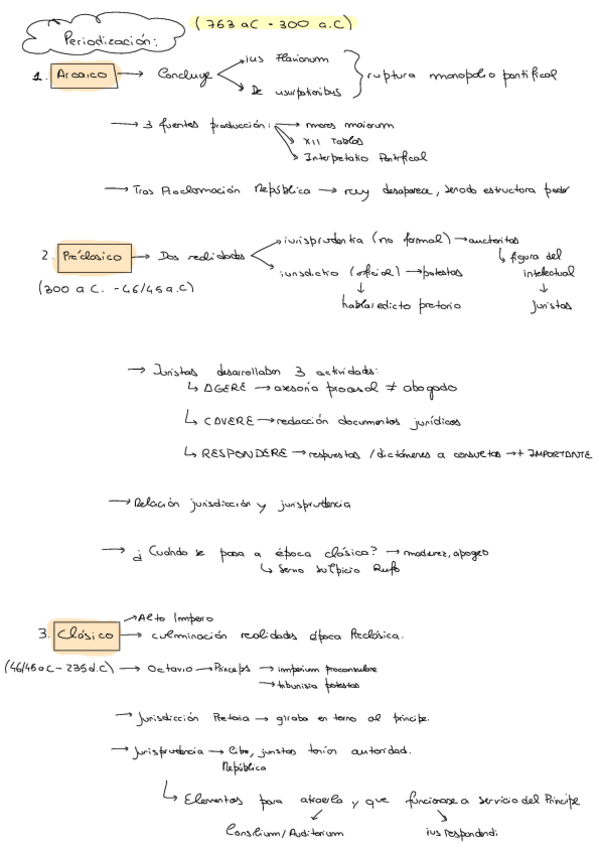 (763 aC - 300 a.C)
Periodización:
1. Arcaico → Concluye
ius Flavianum
De usurpationibus
ruptura monopolio pontifical
→ 3 fuentes producción:
→ mores maiorum
→ XII Tablas
→ Interpretatio Pontifical
→ Tras Proclamación República → rey desaparece, siendo estructura poder
2. Preclásico → Dos realidades
iurisprudentia (no formal) → auctoritas
↳ figura del
intelectual
↓
juristas
iurisdictio (oficial) → potestas
↓
habla: edicto pretorio
(300 a C. - 46/45 a.C)
→ Juristas desarrollaban 3 actividades:
↳ AGERE → asesoría procesal ≠ abogado
↳ CAVERE → redacción documentos jurídicos
↳ RESPONDERE → respuestas / dictámenes a consultas → + IMPORTANTE
→ Relación jurisdicción y jurisprudencia
→ ¿Cuándo se pasa a época clásico? → madurez, apogeo
↳ Servio Sulpicio Rufo
3. Clásico
→ Alto Imperio
→ culminación realidades época Preclásica.
(46/45 a C - 235 d.C) → Octavio → Princeps → imperium proconsulare
→ tribunitia potestas
→ Jurisdicción Pretoria → giraba en torno al príncipe.
→ Jurisprudencia → libre, juristas tenían autoridad.
República
↳ Elementos para atraerla y que funcionase a servicio del Príncipe
Consilium/Auditorium
ius respondendi